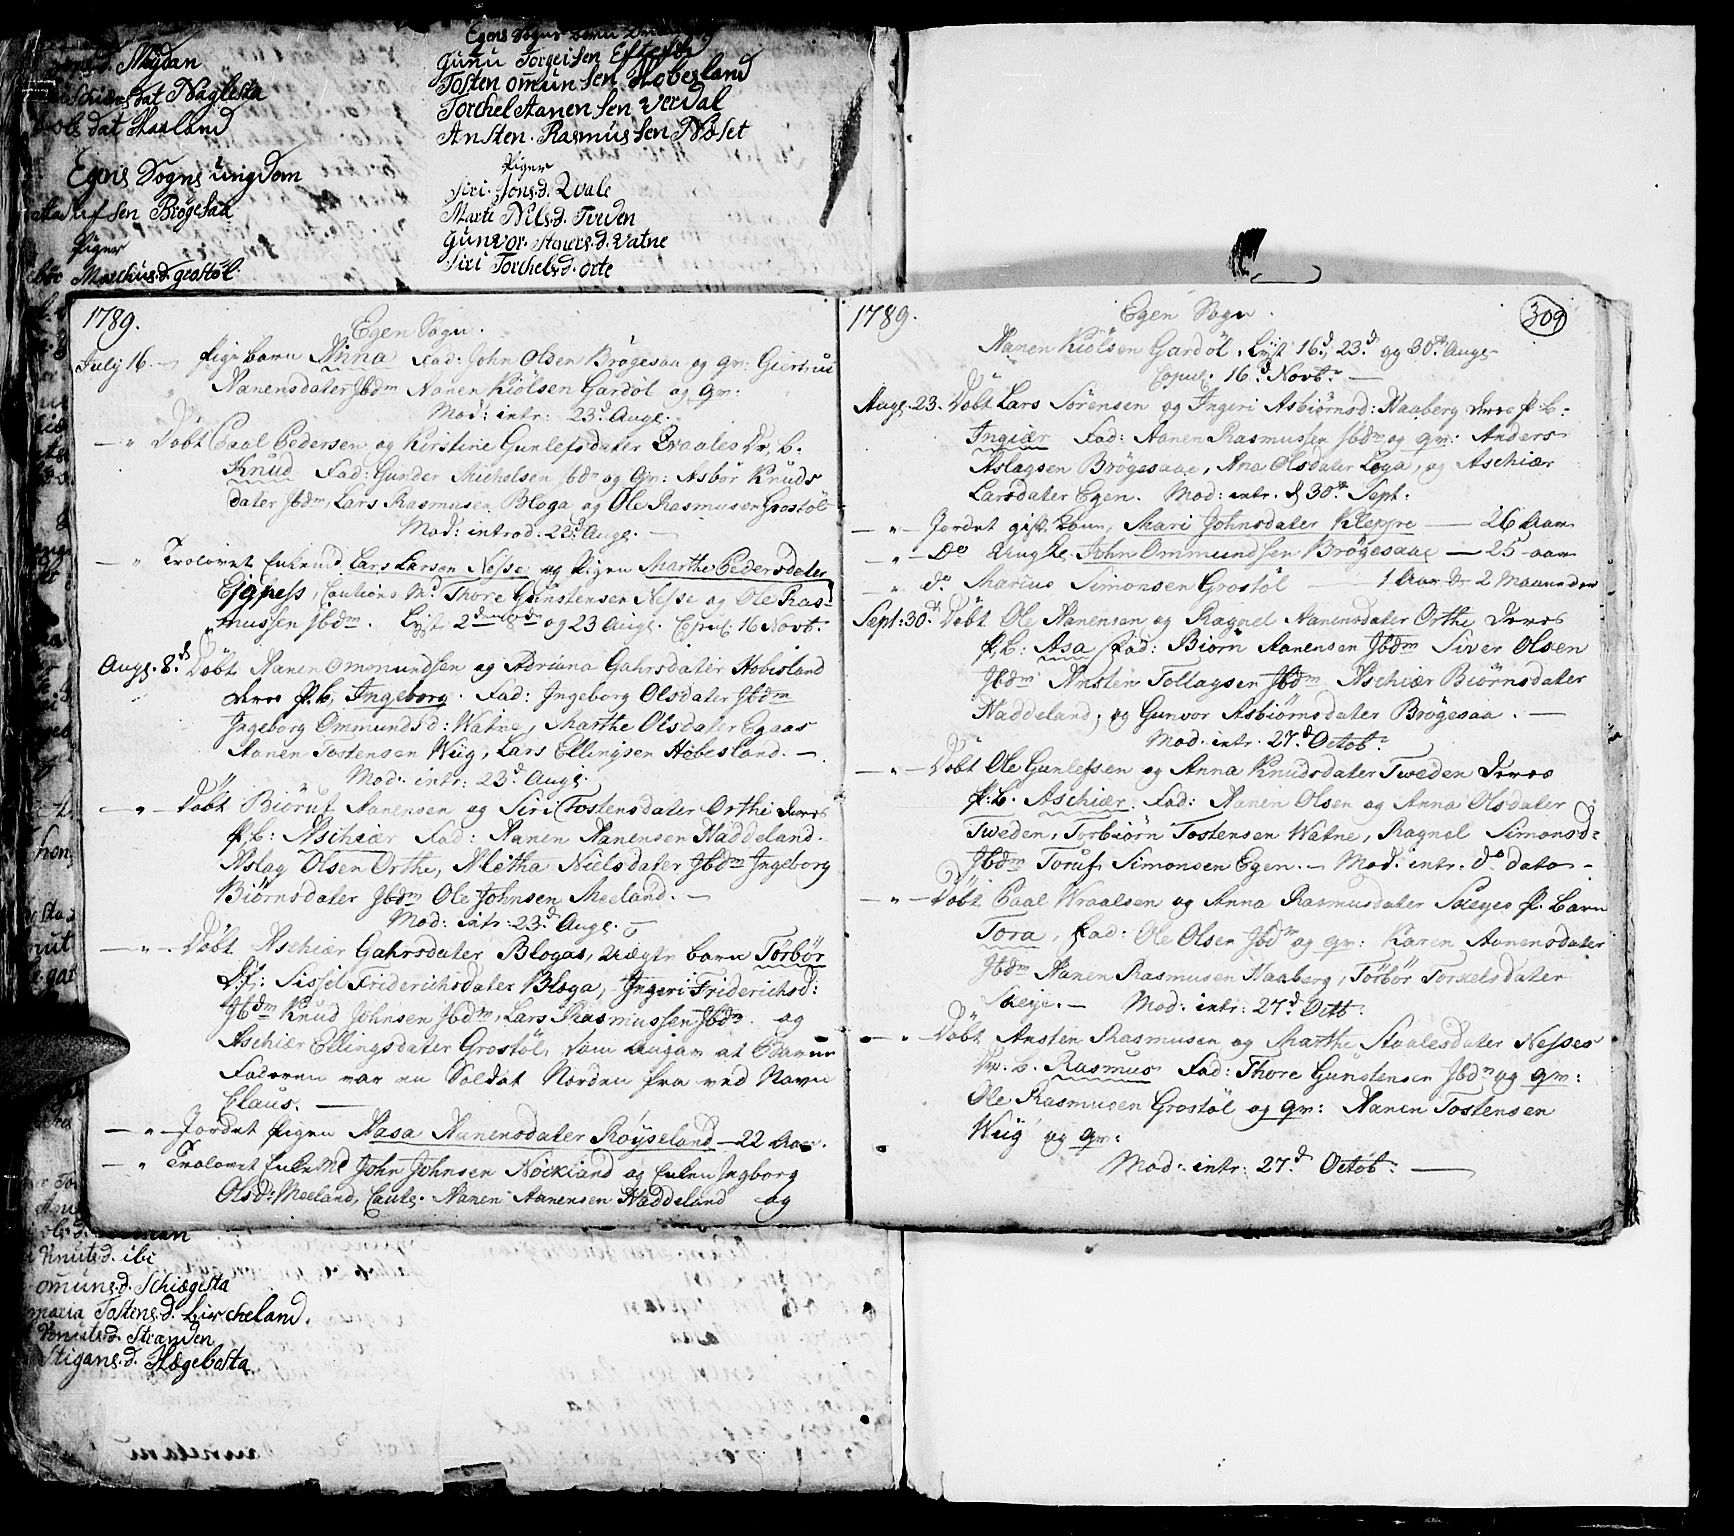 Nijdan
dat Naglesta
dat Haaland
Egens Sogns ungdom
sen Brøgesaa
Piger
Marchus.d. grostøl
Egens Sogns
Gunu Torgeisen
Tosten omunsen Hobesland
Torchel Aanensen Verdal
Ansten Rasmussen Næset
Piger
Siri Jons.d. Qvale
Marte Nils.d. Tveden
Gunvor Sivers.d. Vatne
Siri Torchels.d. orte
1789.
Egen Sogn.
Julij 16 — Pigebarn Anna Fad: John Olsen Brøgesaa og qv: Giertrui
Aanensdater Jbdm Aanen Kiølsen Gardøl og qv:
Mod: intr: 23d Augs.
— " Døbt Paal Pedersen og Kirstine Gunlefsdater Qvaales Dr. b.
Knud Fad: Gunder Michelsen Jbdm og qv: Asbør Knuds
dater Jbdm, Lars Rasmusen Bloga og Ole Rasmusen Grostøl
Mod: introd: 23d Augs. —
— " Trolovet Enkemd Lars Larsen Nesse og Pigen Marthe Pedersdater
Cautions Md Thore Gunstensen Nesse og Ole Ras-
mussen Jbdm. Lyst 2den og 23 Augs. Copul. 16 Novbr
Augs. 8d Døbt Aanen Ommundsen og Adriana Gahrsdater Hobisland
deres p.b. Ingeborg. Fad: Ingeborg Olsdater Jbdm
Ingeborg Ommundsd: Watne, Marthe Olsdater Egaas
Aanen Tostensen Wiig, Lars Ellingsen Høbesland. —
Mod: intr: 23d Augs.
— " — Døbt Biøruf Aanensen og Siri Tostensdater Orthe deres
p.b: Aschiær Fad: Aanen Aanensen Naddeland.
Aslag Olsen Orthe, Metha Nielsdater Jbdm Ingeborg
Biørnsdater Jbdm Ole Johnsen Meeland. —
Mod: intr: 23d Augs.
— " — Døbt Aschiær Gahrsdater Blogas, uægte barn Tørbør
Fad: Sissel Friderichsdater Bloga, Ingeri Friderichsd:
Jbdm Knud Johnsen Jbdm, Lars Rasmussen Jbdm og
Aschiær Ellingsdater Grostøl, som angav at Barnets
Faderen var en Soldat Norden fra ved Navn
Claus. —
— " — Jordet Pigen Aasa Aanensdater Røyseland — 22 Aar.
— " Trolovet Enkemd John Johnsen Nøckland og Enken Ingborg
Olsd: Meeland, Cauts. Aanen Aanensen Naddeland og
1789.
Egen Sogn.
309
Aanen Kiølsen Gardøl. Lyst 16d, 23d og 30te Augs
Copul. 16d Novbr —
Augs. 23. Døbt Lars Sørensen og Ingeri Asbiørnsd: Haaberg deres p.b:
Ingiær Fad: Aanen Rasmussen Jbdm og qv: Anders
Aslagsen Brøgesaae, Ana Olsdater Loga, og Aschiær
Larsdater Egen. Mod: intr. d 30te Sept:
— " — Jordet gift Kone, Mari Johnsdater Kleppre — 26 Aar
— " — Do Ungkl. John Ommundsen Brøgesaae — 25 aar
— " do Marius Simonsen Grostøl — 1 Aar 2 Maaneder
Sept: 30d Døbt Ole Aanensen og Ragnel Aanensdater Orthe deres
p.b: Asa Fad: Biørn Aanensen Jbdm Siver Olsen
Jbdm Ansten Tollagsen Jbdm Aschiær Biørnsdater
Naddeland, og Gunvor Asbiørnsdater Brøgesaa. —
Mod: intr: 27d Octob:
— " — Døbt Ole Gunlefsen og Anna Knudsdater Tweden deres
p.b. Aschiær. Fad: Aanen Olsen og Anna Olsdater
Tweden, Torbiørn Tostensen Watne, Ragnel Simonsd:
Jbdm Toruf Simonsen Egen. — Mod: intr: do dato —
— " — Døbt Paal Wraalsen og Anna Rasmusdater p. barn
Tora, Fad: Ole Olsen Jbdm og qv: Karen Aanensdater
Jbdm Aanen Rasmusen Haaberg, Tørbør Torkelsdater
— Mod: intr: 27d Octb.
— " — Døbt Ansten Rasmusen og Marthe Staalesdater Nesses
Dr. b. Rasmus Fad: Thore Gunstensen Jbdm og qv:
Ole Rasmusen Grostøl og qv: Aanen Tostensen
Wiig og qv:
Mod: intr: 27d Octob: —
Knuts.d. ibi
omuns.d. Schiægista
maria Tostens.d. Lircheland.
Knuts.d. Stranden
Stigans.d. Hægebosta